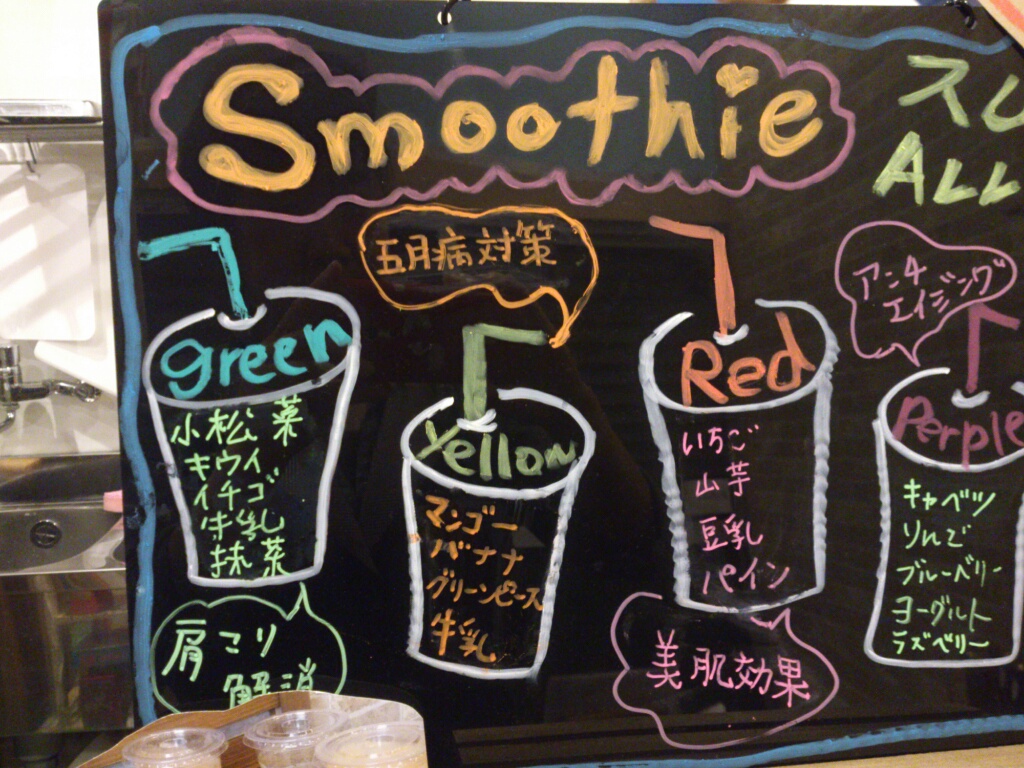 Smoothie
スム
ALL
五月病対策
アンチ
エイジング
green
小松菜
キウイ
イチゴ
牛乳
抹茶
肩こり
解消
Yellow
マンゴー
バナナ
グリーンピース
牛乳
Red
いちご
山芋
豆乳
パイン
美肌効果
Perple
キャベツ
りんご
ブルーベリー
ヨーグルト
ラズベリー